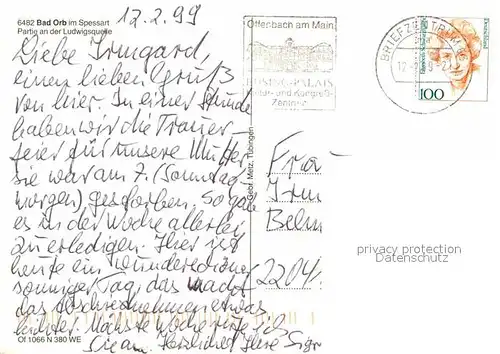 6482 Bad Orb im Spessart
Partie an der Ludwigsquelle
12.2.99
Liebe Irmgard,
einen lieben Gruß
von hier. In einer Stunde
haben wir die Trauer-
feier für unsere Mutter,
sie war am 7. (Sonntag
morgen) gestorben. So gab
es in der Woche allerlei
zu erledigen. Hier ist
heute ein wunderschöner
sonniger Tag, das macht
das Abschiednehmen etwas
leichter. Nächste Woche rufe ich
Sie an. Herzlichst Ihre Sigr
Of 1066 N 380 WE
Gebr. Metz, Tübingen
Offenbach am Main
BÜSING-PALAIS
und Kongreß-
Zentrum
BRIEFZENTRUM
Deutschland
100
Frau
Irm
2204
privacy protection
Datenschutz